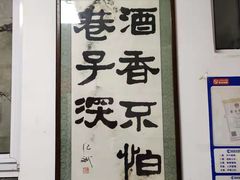 酒香不怕
巷子深